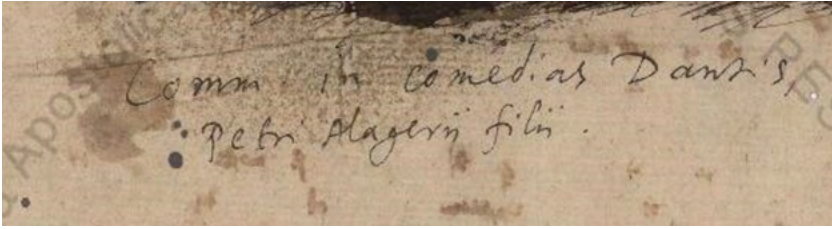 Comm in comedias Dantis,
Petri Alagerii filii .